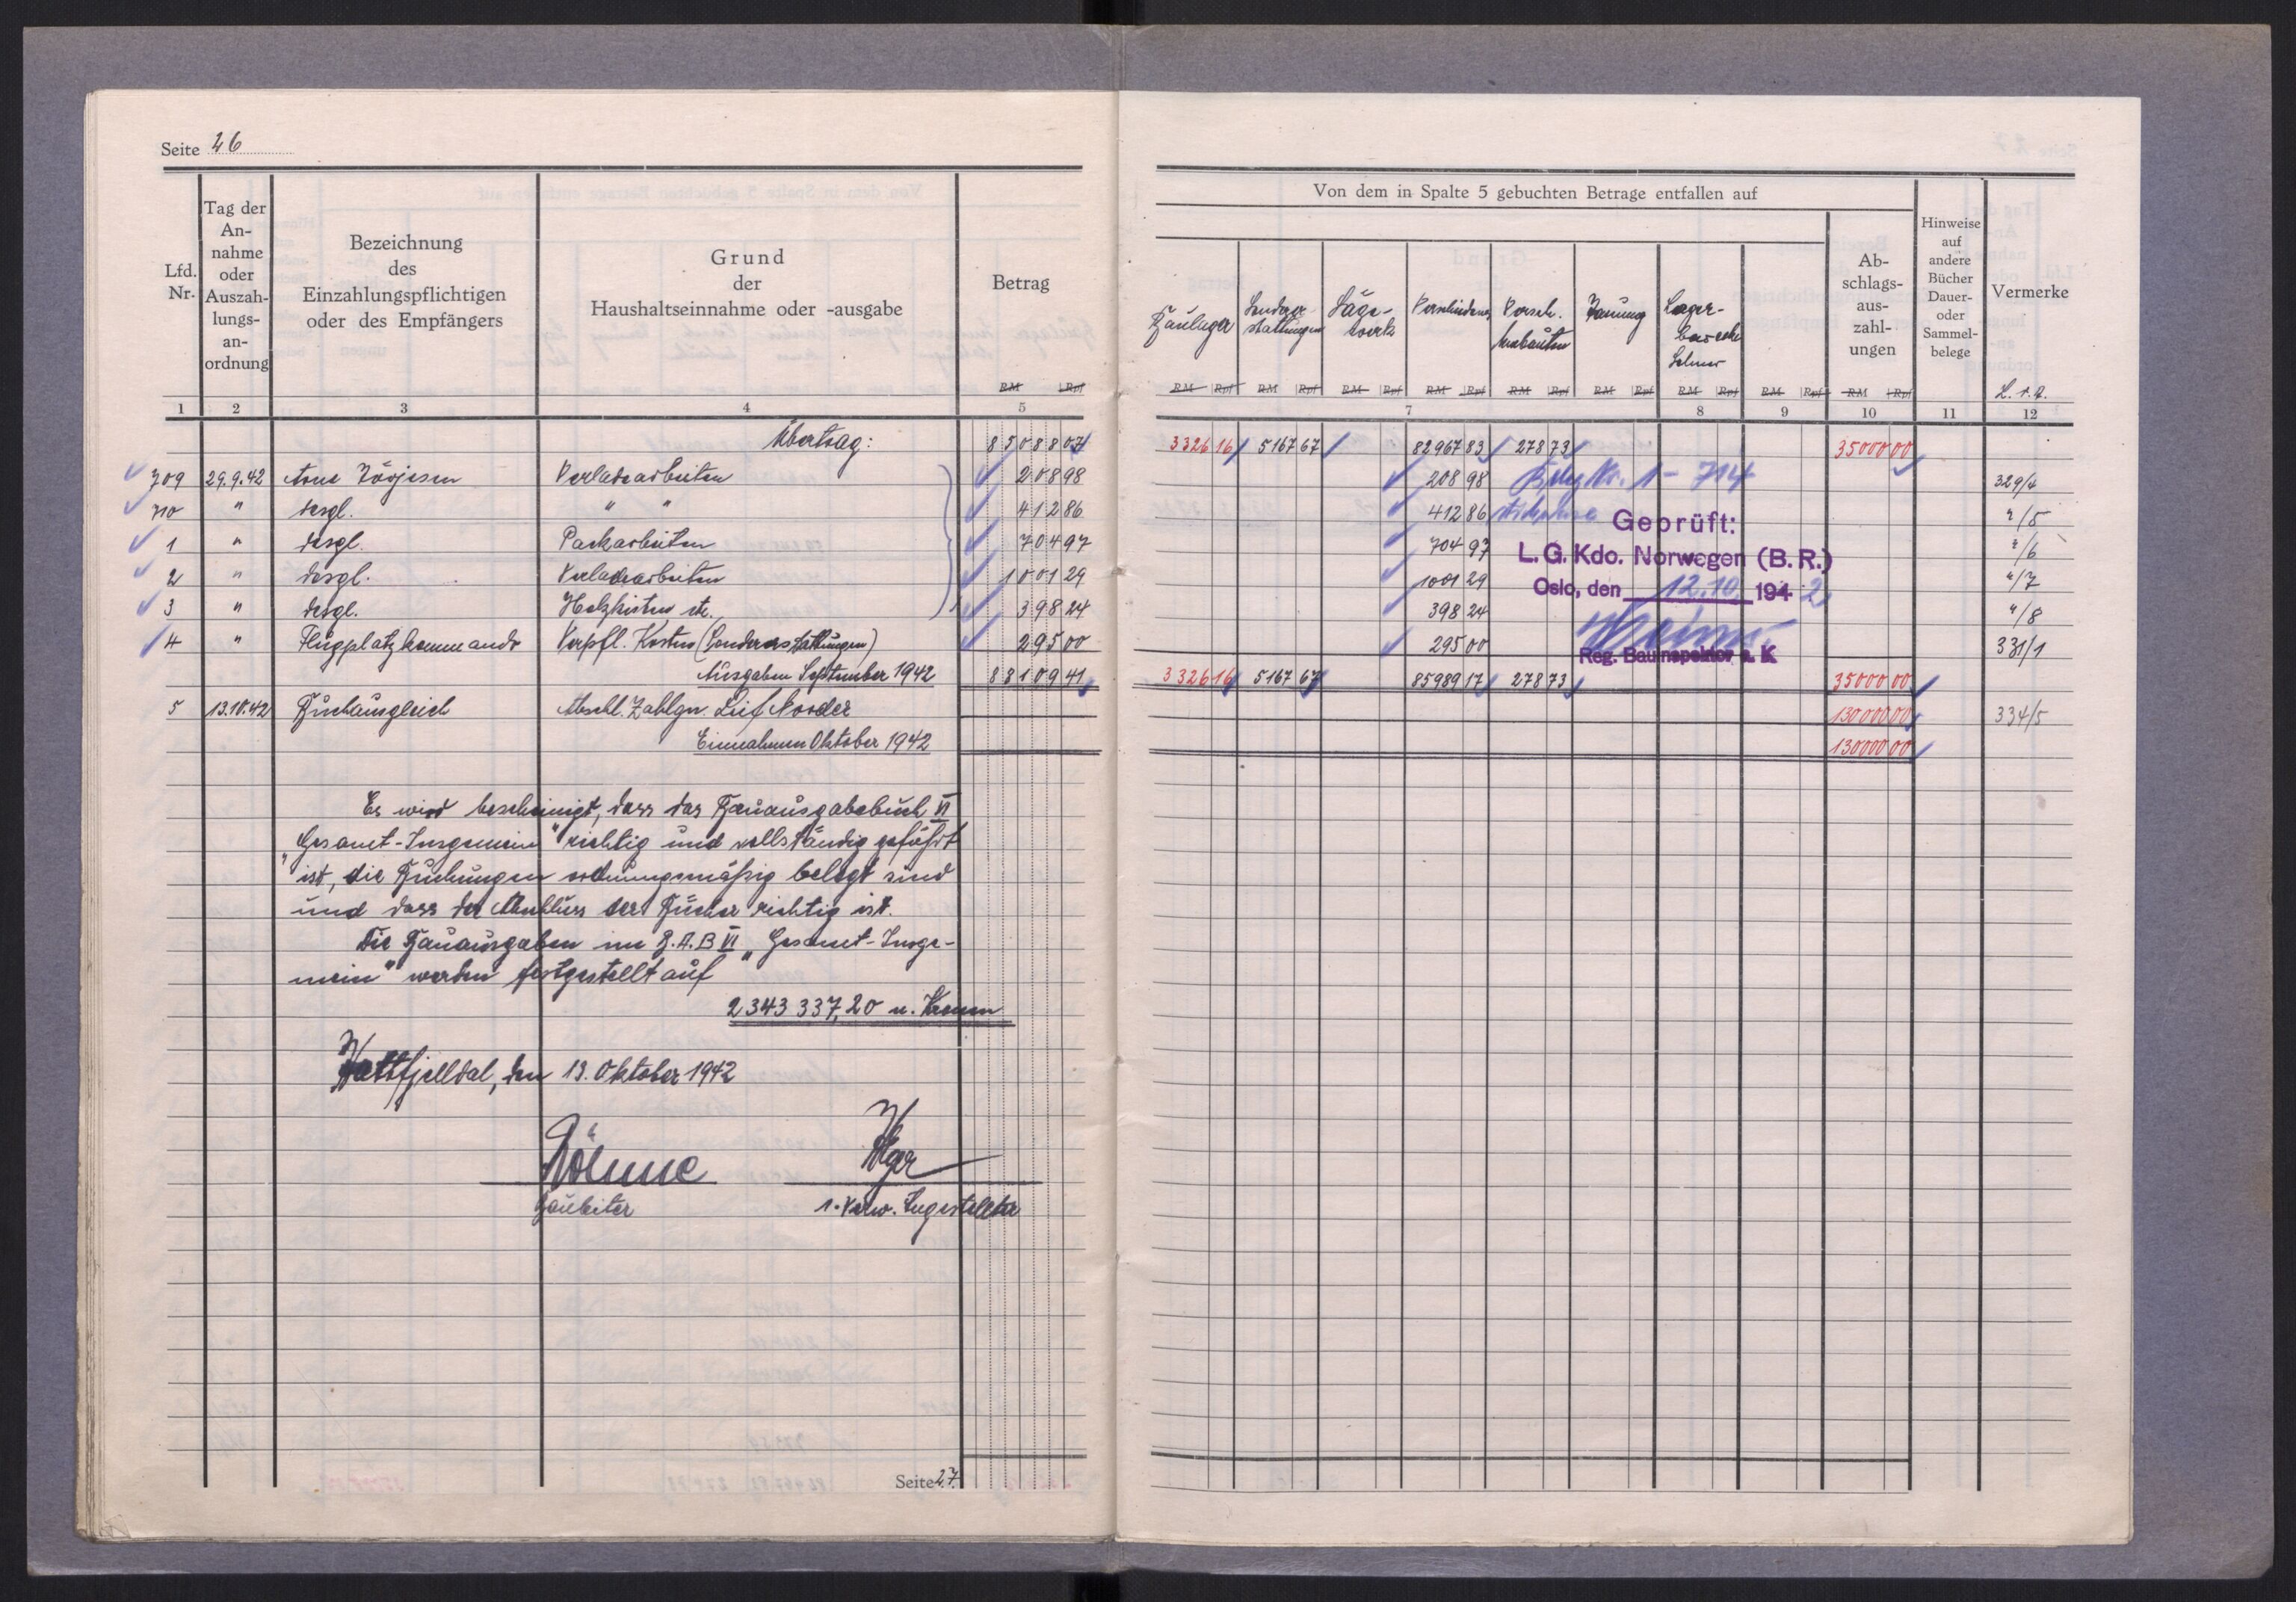 Seite 26
Lfd. Nr.
Tag der An-nahme oder Auszah-lungs-an-ordnung
Bezeichnung des Einzahlungspflichtigen oder des Empfängers
Grund der Haushaltseinnahme oder -ausgabe
Betrag
RM Rpf
1 2 3 4 5
Übertrag: 85088 07
709 29.9.42 Arne Verladearbeiten 208 98
710 " desgl. " " 412 86
1 " desgl. Packarbeiten 704 97
2 " desgl. Verladearbeiten 1001 29
3 " desgl. Holzkisten etc. 398 24
4 " Flugplatzkommando Verpfl. Kosten (Sondererstattungen) 295 00
Ausgaben September 1942 88109 41
5 13.10.42 Buchausgleich Abschl. Zahlgn. Leif
Einnahmen Oktober 1942
Es wird bescheinigt, dass das Bauausgabebuch VI
„Gesamt-Insgemein" richtig und vollständig geführt
ist, die Buchungen ordnungsmäßig belegt sind
und dass der Abschluss der Bücher richtig ist.
Die Bauausgaben im B.A.B VI „Gesamt-Insge-
mein" werden festgestellt auf
2343 337,20 n. Kronen
Hattfjelldal, den 13. Oktober 1942
Bauleiter 1. Verw. Angestellter
Seite 27
Von dem in Spalte 5 gebuchten Betrage entfallen auf
Baulager
Sonderer-stattungen
Säge-werk
Verschiedenes
Versch. Ausbauten
Lager-
Ab-schlags-aus-zahl-ungen
Hinweise auf andere Bücher Dauer- oder Sammel-belege
Vermerke
RM Rpf RM Rpf RM Rpf RM Rpf RM Rpf RM Rpf RM Rpf RM Rpf RM Rpf
7 8 9 10 11 12
3326 16 5167 67 82967 83 278 73 35000 00
208 98 Nr. 1 - 714 329/4
412 86 " /5
Geprüft:
704 97 " /6
L. G. Kdo. Norwegen (B. R.)
1001 29 " /7
Oslo, den 12.10. 1942
398 24 " /8
295 00 331/1
Reg. Bauinspektor a. K
3326 16 5167 67 85989 17 278 73 35000 00
130000 00 334/5
130000 00